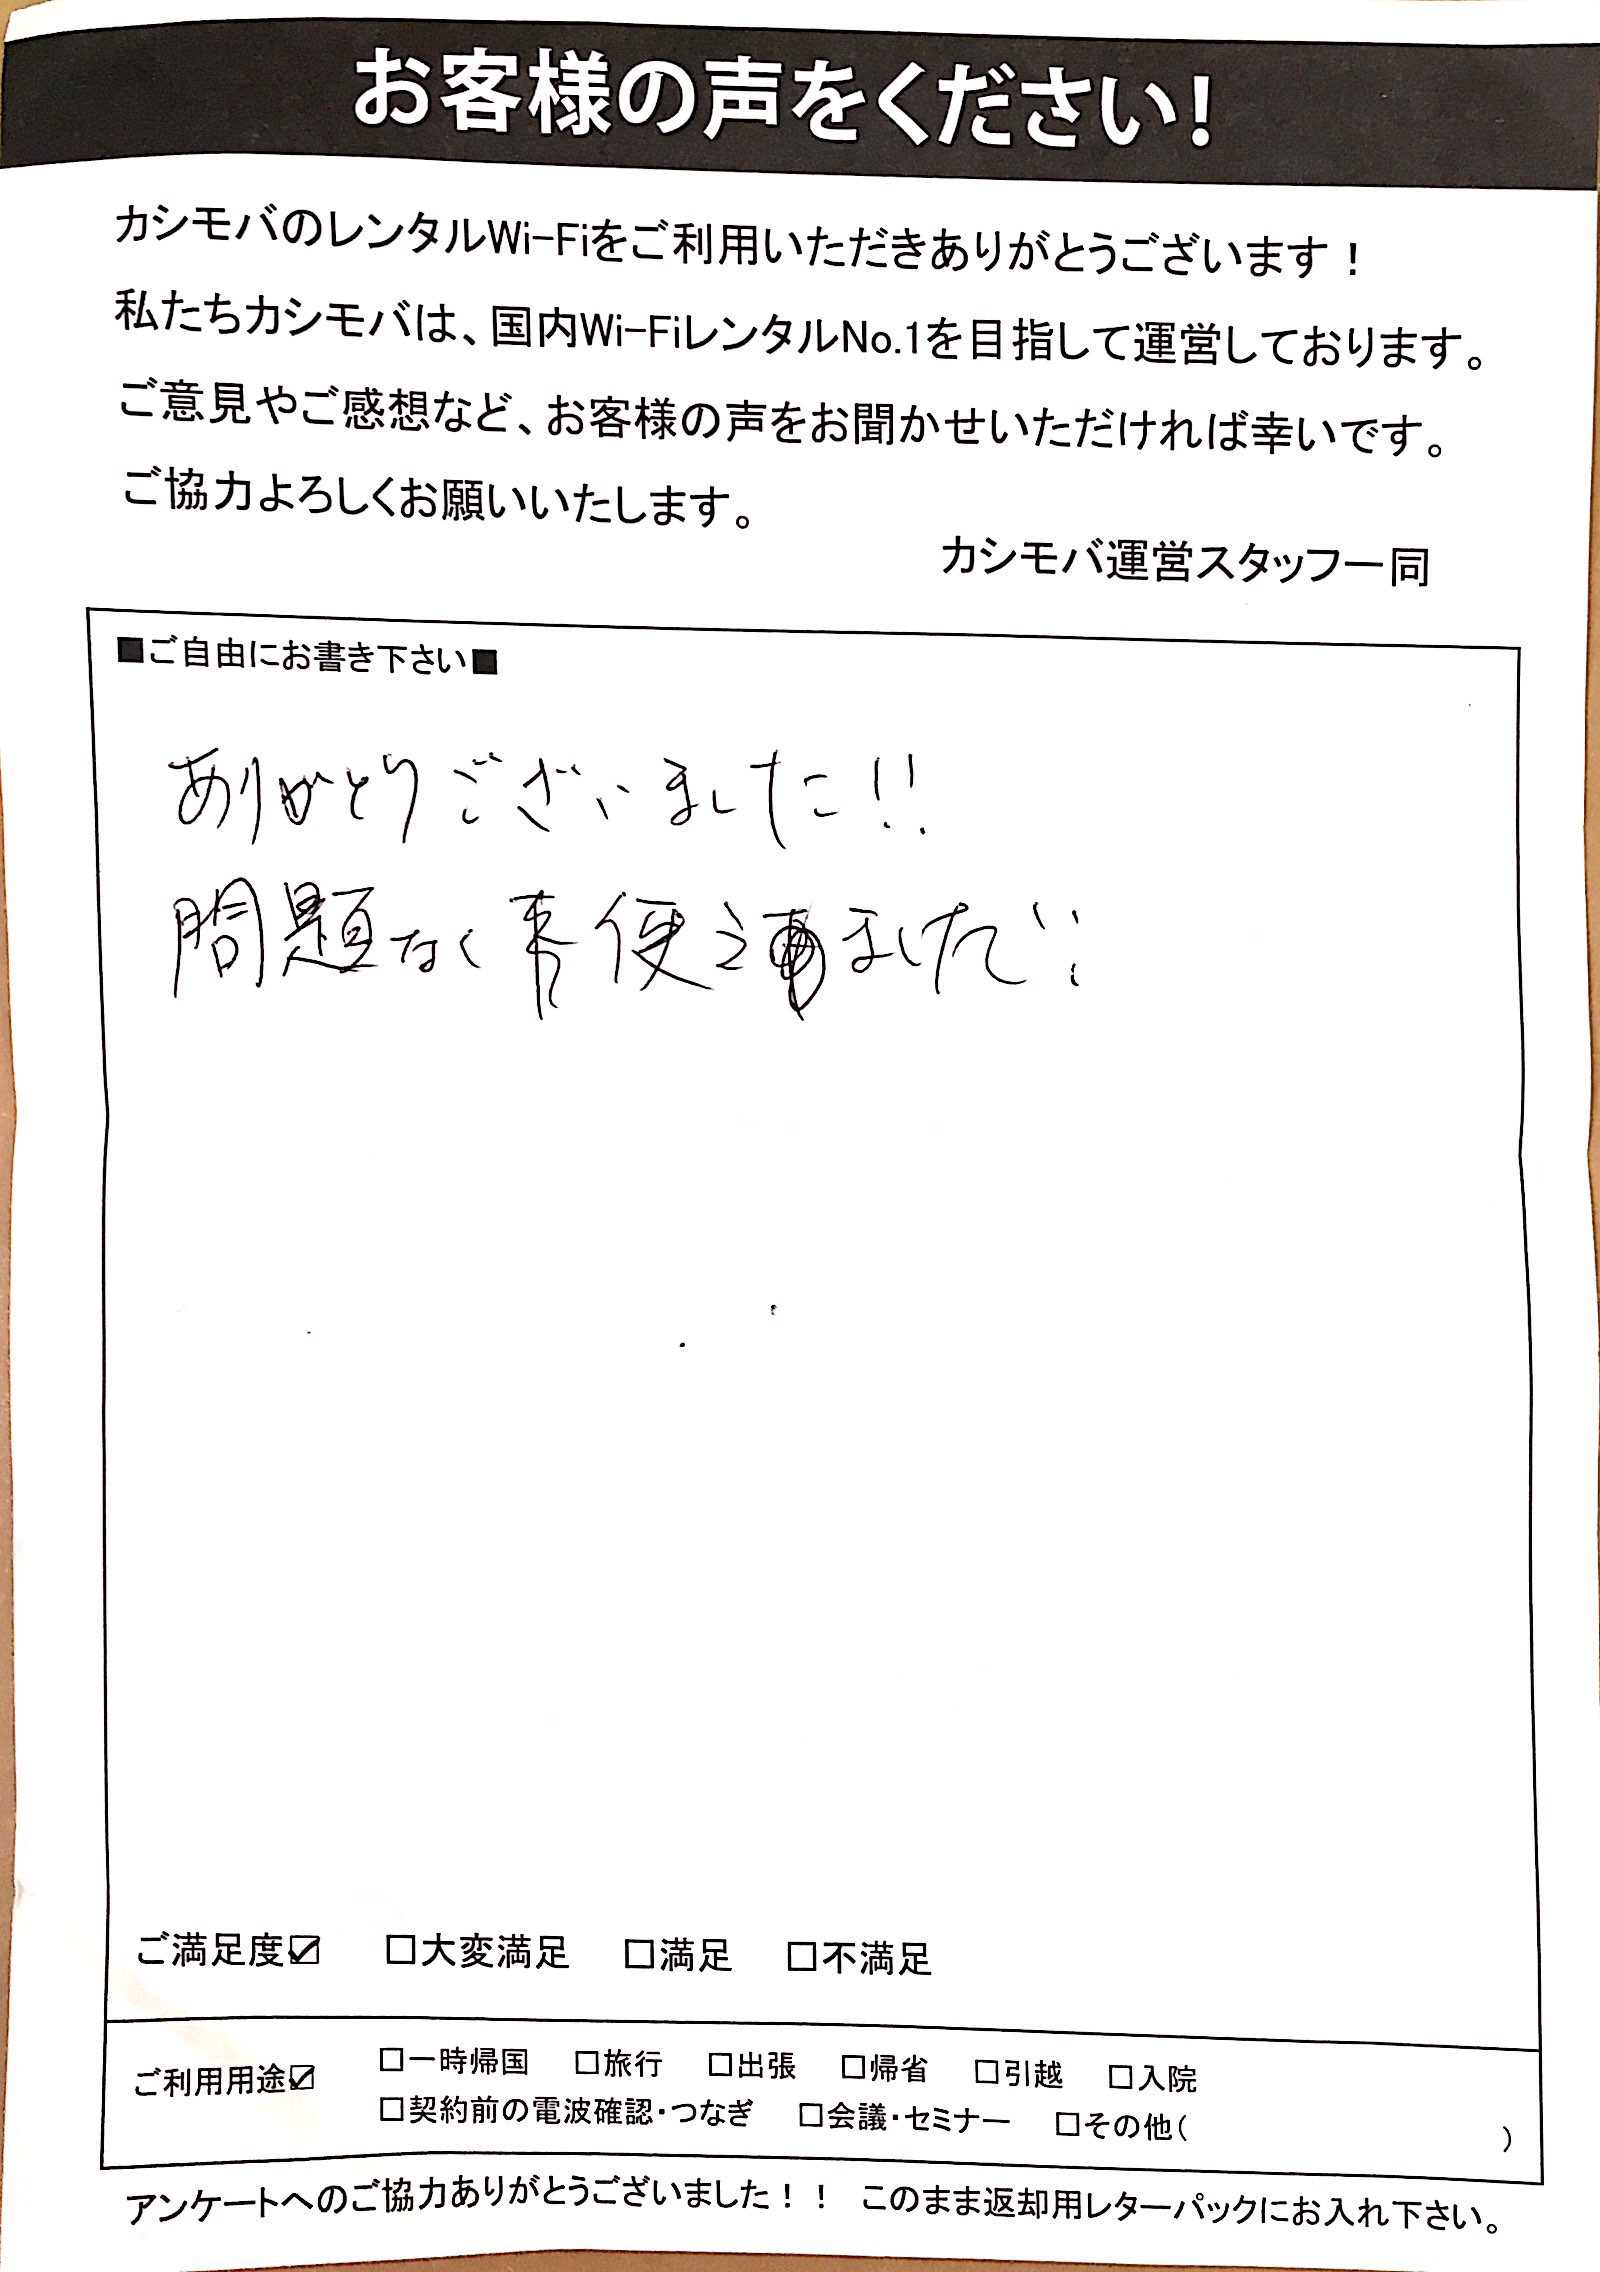 お客様の声をください!
カシモバのレンタルWi-Fiをご利用いただきありがとうございます！
私たちカシモバは、国内Wi-FiレンタルNo.1を目指して運営しております。
ご意見やご感想など、お客様の声をお聞かせいただければ幸いです。
ご協力よろしくお願いいたします。
カシモバ運営スタッフ一同
■ご自由にお書き下さい■
ありがとうございました!!
問題なく
ご満足度☑ □大変満足 □満足 □不満足
ご利用用途☑ □一時帰国 □旅行 □出張 □帰省 □引越 □入院
□契約前の電波確認・つなぎ □会議・セミナー □その他( )
アンケートへのご協力ありがとうございました！！ このまま返却用レターパックにお入れ下さい。